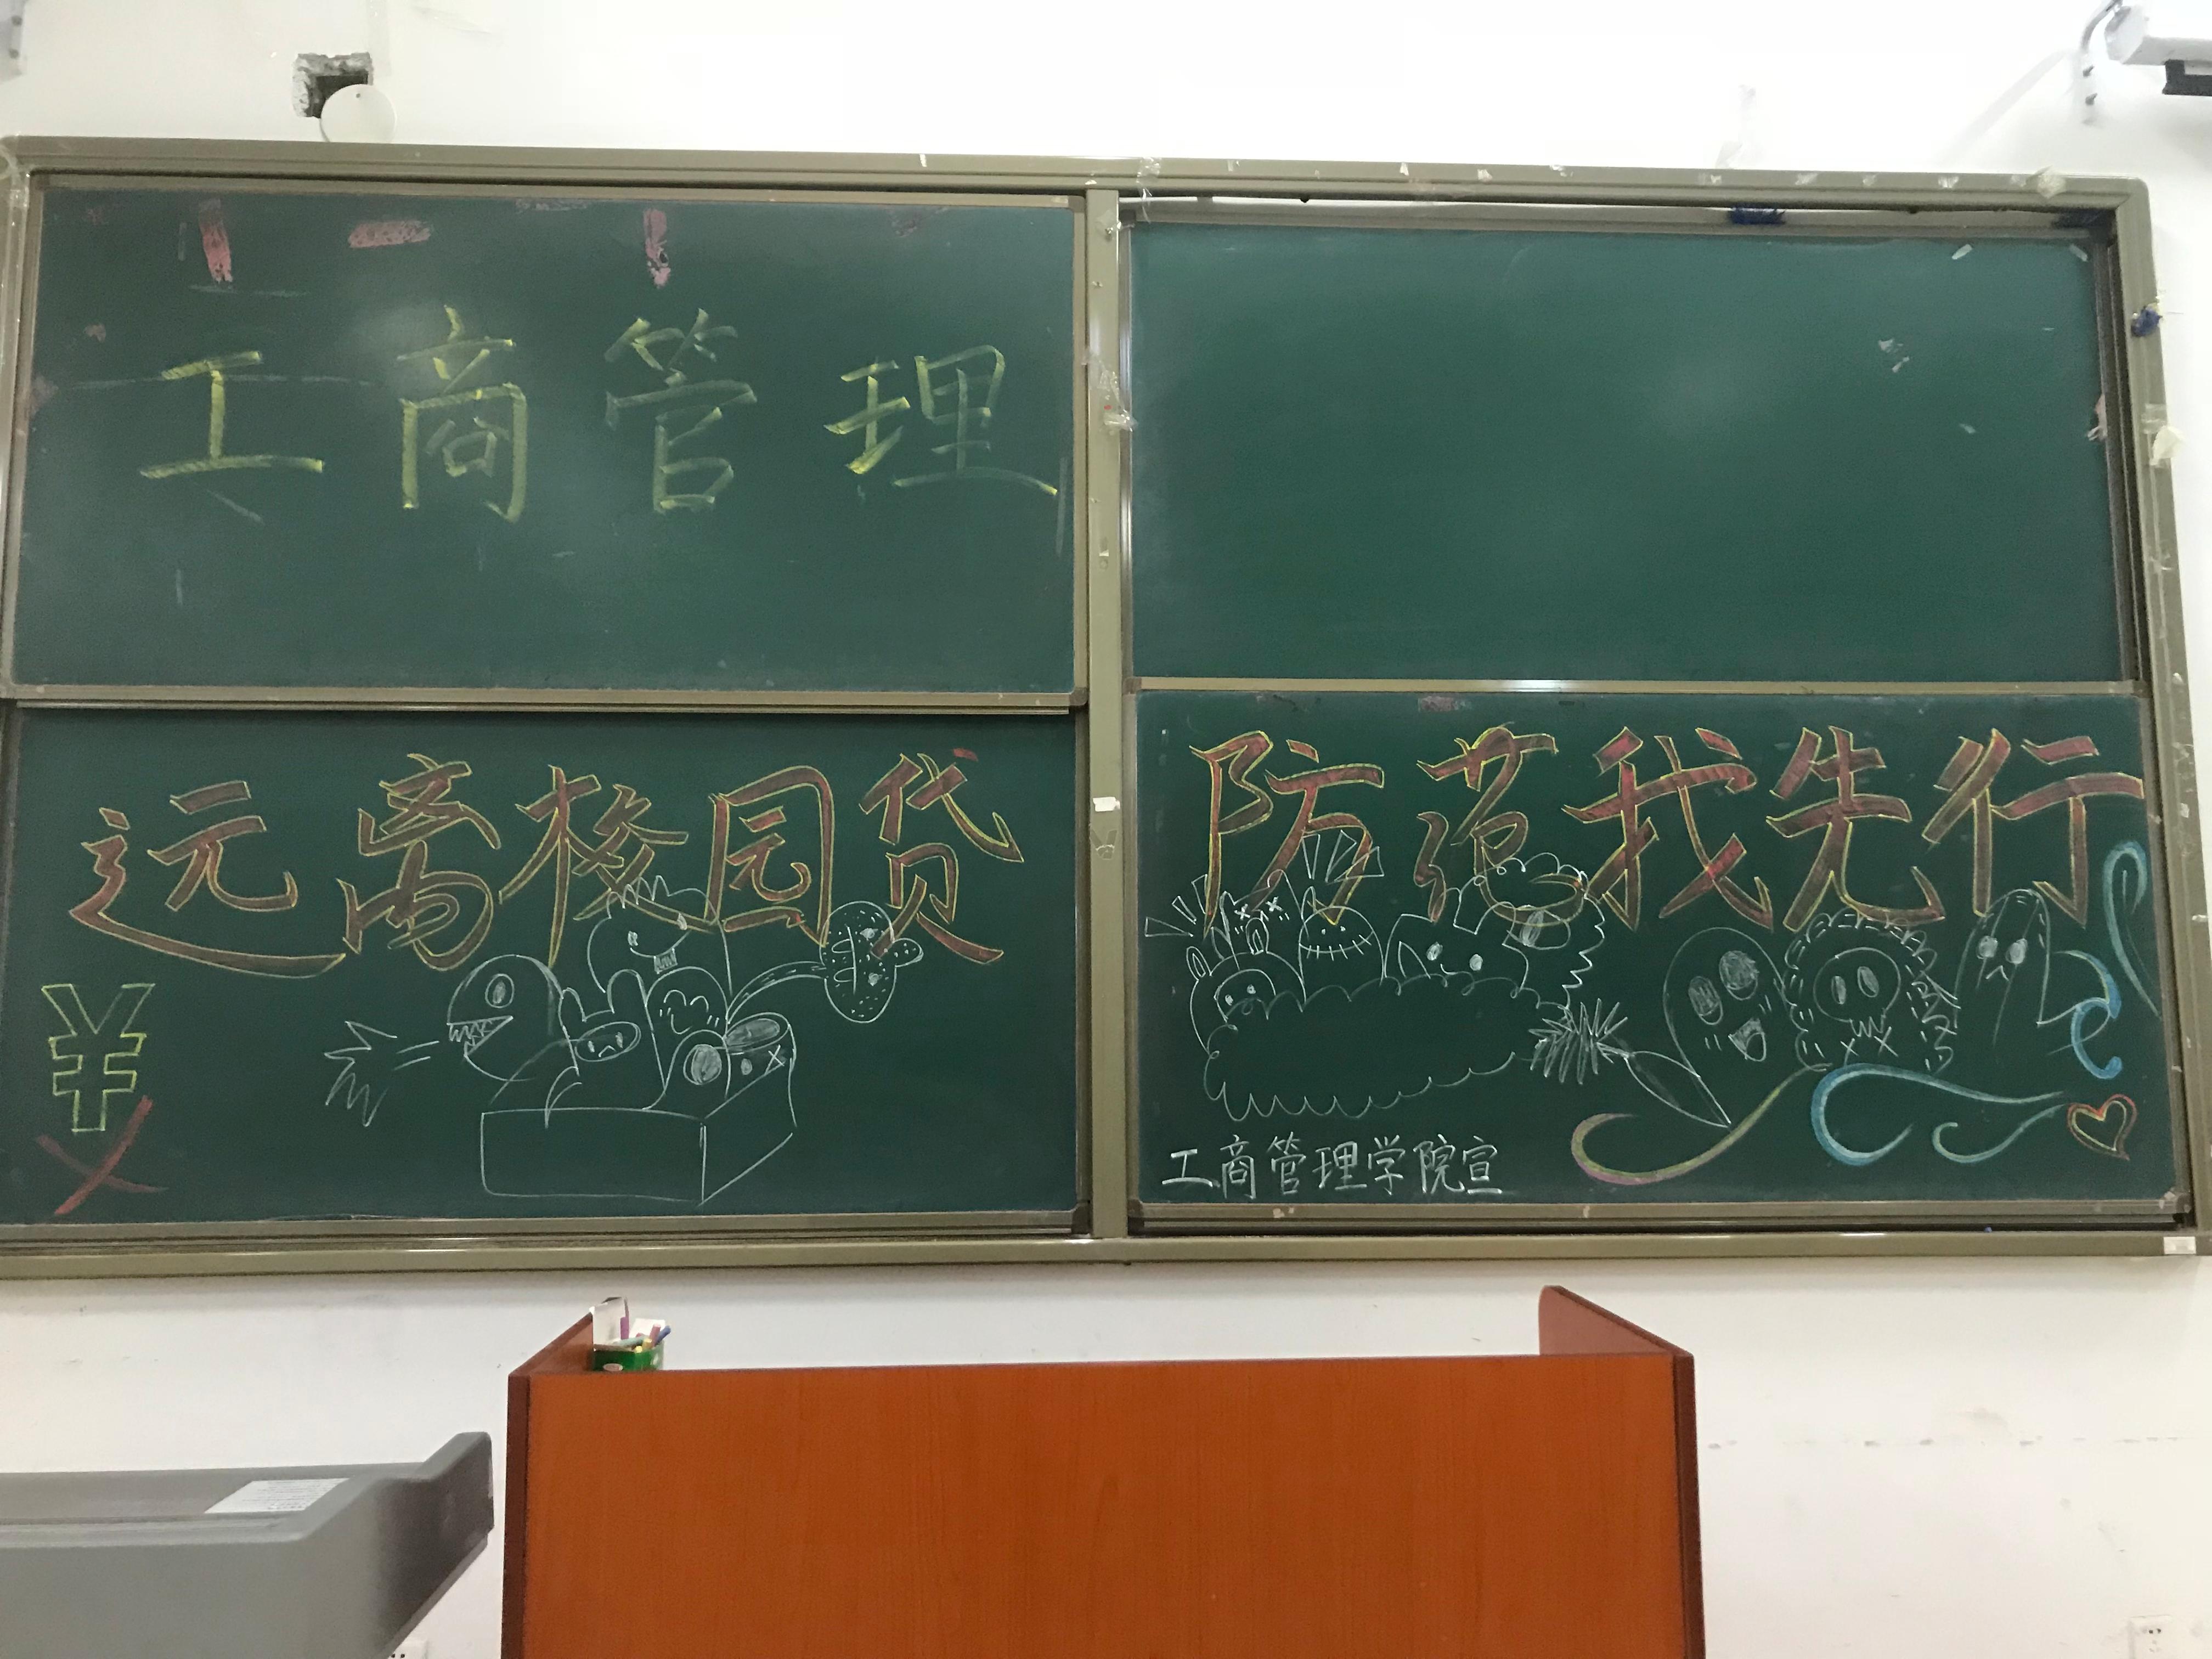 工商管理
远离校园贷
防范我先行
¥
工商管理学院宣